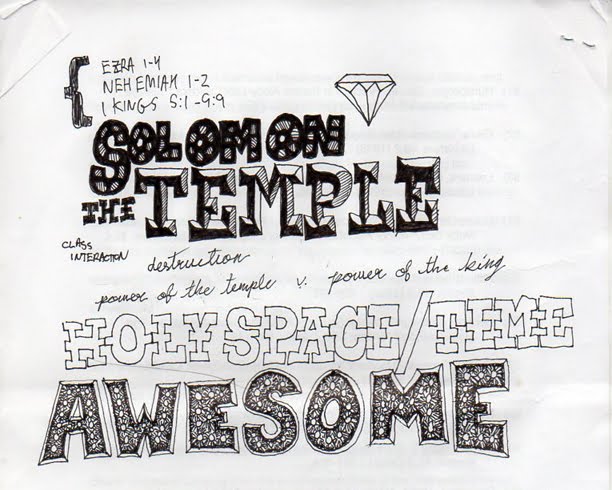 EZRA 1-4
NEHEMIAH 1-2
1 KINGS 5:1-9:9
SOLOMON
THE TEMPLE
CLASS
INTERACTION
destruction
power of the temple v. power of the king
HOLY SPACE/TIME
AWESOME